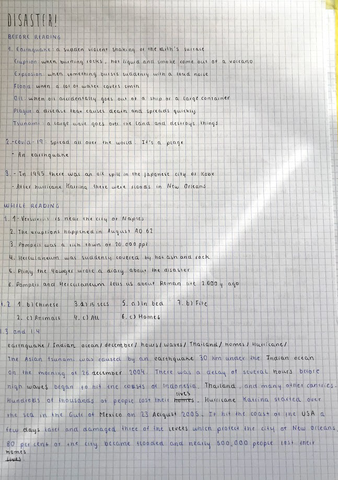 DISASTER!
BEFORE READING
1. Earthquake: a sudden violent shaking of the earth's surface
Eruption: when burning rocks, hot liquid and smoke come out of a volcano
Explosion: when something bursts suddenly with a loud noise
Flood: when a lot of water covers
Oil: when oil accidentally goes out of a ship or a large container
Plague: a disease that causes death and spreads quickly
Tsunami: a large wave goes over the land and destroys things
2. -Covid-19 spread all over the world. It's a plague
- An earthquake
3. - In 1995 there was an oil spill in the Japanese city of Kobe
- After hurricane Katrina there were floods in New Orleans
WHILE READING
1. 1. Vesuvius is near the city of Naples
2. The eruptions happened in August AD 62
3. Pompeii was a rich town of 20.000 ppl
4. Herculaneum was suddenly covered by hot ash and rock
5. Pliny the Younger wrote a diary about the disaster
6. Pompeii and Herculaneum tell us about Roman life 2.000 y ago
1.2 1. b) Chinese 3. d) 10 secs 5. a) In bed 7. b) Fire
2. c) Animals 4. c) All 6. c) Homes
1.3 and 1.4
earthquake / Indian ocean / december / hours / waves / Thailand / homes / Hurricane /
The Asian tsunami was caused by an earthquake 30 km under the Indian ocean
on the morning of 26 december 2004. There was a delay of several hours before
high waves began to hit the coasts of Indonesia, Thailand, and many other countries.
Hundreds of thousands of people lost their lives. Hurricane Katrina started over
the sea in the Gulf of Mexico on 23 August 2005. It hit the coast of the USA a
few days later and damaged three of the levees which protect the city of New Orleans.
80 per cent of the city became flooded and nearly 500,000 people lost their
homes